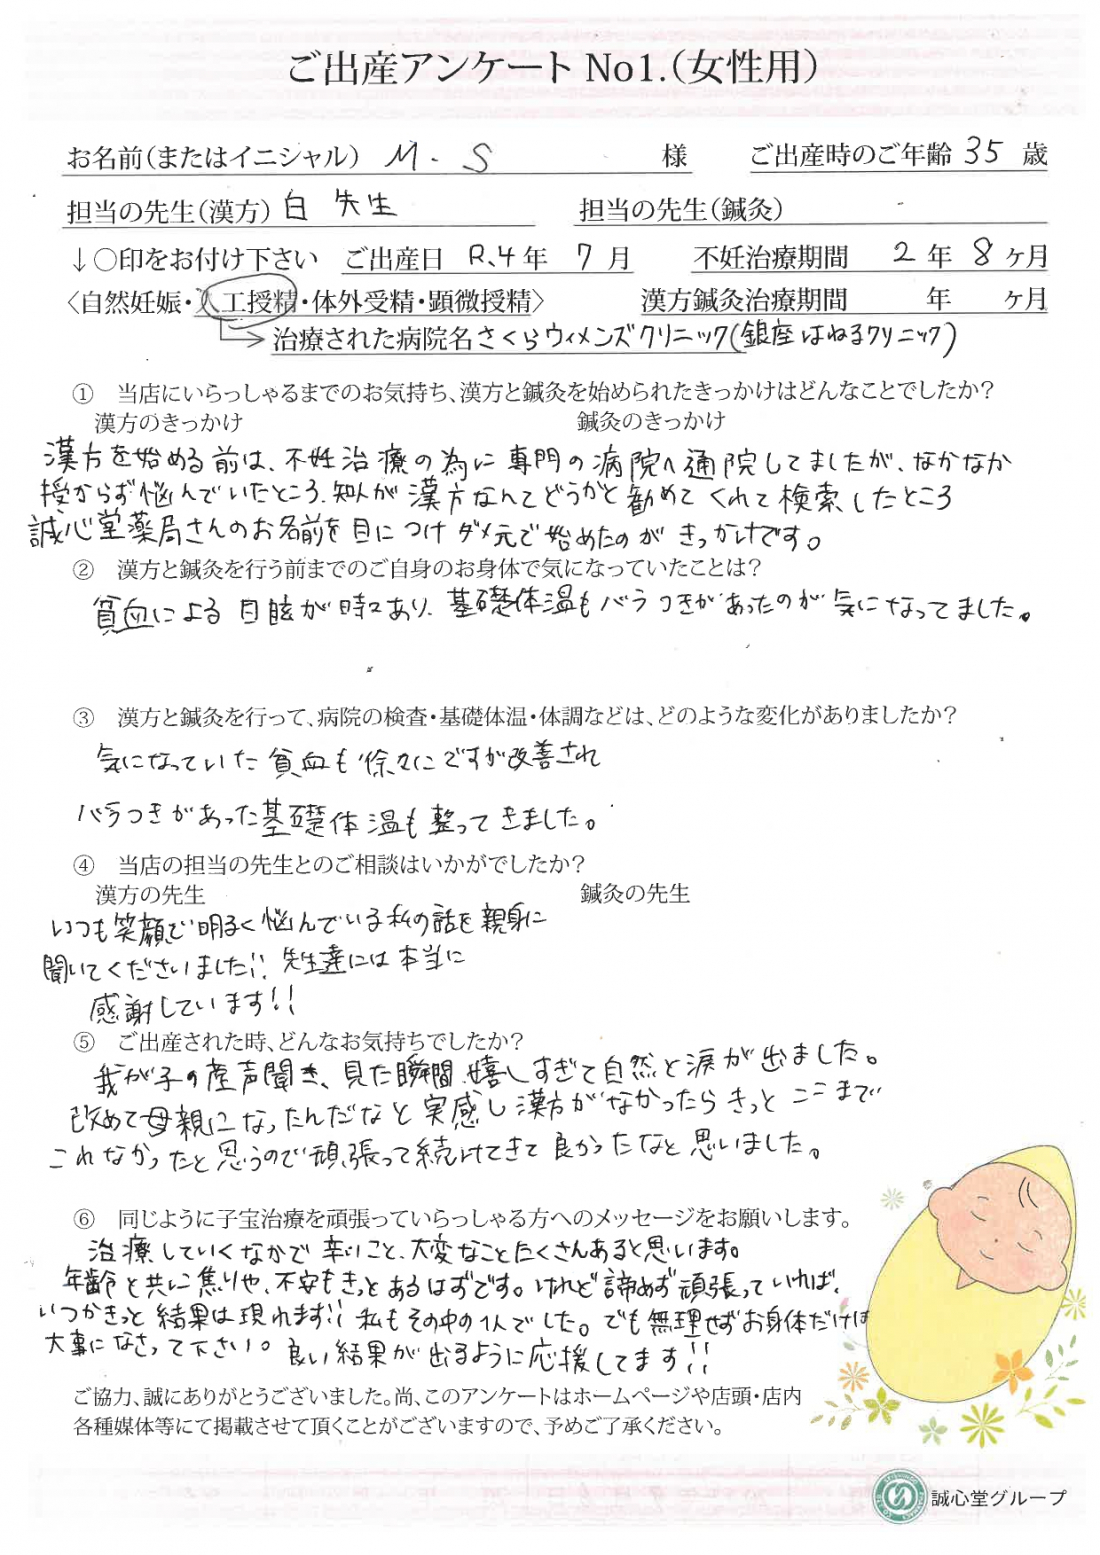 ご出産アンケート No1.(女性用)
お名前(またはイニシャル) M.S 様 ご出産時のご年齢 35 歳
担当の先生(漢方) 白 先生 担当の先生(鍼灸) -
↓○印をお付け下さい ご出産日 R.4年 7月 不妊治療期間 2年 8ヶ月
〈自然妊娠・人工授精・体外受精・顕微授精〉 漢方鍼灸治療期間 年 ヶ月
治療された病院名さくらウィメンズクリニック(銀座はねるクリニック)
① 当店にいらっしゃるまでのお気持ち、漢方と鍼灸を始められたきっかけはどんなことでしたか?
漢方のきっかけ 鍼灸のきっかけ
漢方を始める前は、不妊治療の為に専門の病院へ通院してましたが、なかなか
授からず悩んでいたところ、知人が漢方なんてどうかと勧めてくれて検索したところ
誠心堂薬局さんのお名前を目につけダメ元で始めたのがきっかけです。
② 漢方と鍼灸を行う前までのご自身のお身体で気になっていたことは?
貧血による目眩が時々あり、基礎体温もバラつきがあったのが気になってました。
③ 漢方と鍼灸を行って、病院の検査・基礎体温・体調などは、どのような変化がありましたか?
気になっていた貧血も徐々にですが改善され
バラつきがあった基礎体温も整ってきました。
④ 当店の担当の先生とのご相談はいかがでしたか?
漢方の先生 鍼灸の先生
いつも笑顔で明るく悩んでいる私の話を親身に
聞いてくださいました!! 先生達には本当に
感謝しています!!
⑤ ご出産された時、どんなお気持ちでしたか?
我が子の産声聞き、見た瞬間、嬉しすぎて自然と涙が出ました。
改めて母親になったんだなと実感し漢方がなかったらきっとここまで
これなかったと思うので頑張って続けてきて良かったなと思いました。
⑥ 同じように子宝治療を頑張っていらっしゃる方へのメッセージをお願いします。
治療していくなかで辛いこと、大変なことたくさんあると思います。
年齢と共に焦りや、不安もきっとあるはずです。けれど諦めず頑張っていれば、
いつかきっと結果は現れます!! 私もその中の1人でした。でも無理せずお身体だけは
大事になさって下さい。良い結果が出るように応援してます!!
ご協力、誠にありがとうございました。尚、このアンケートはホームページや店頭・店内
各種媒体等にて掲載させて頂くことがございますので、予めご了承ください。
誠心堂グループ